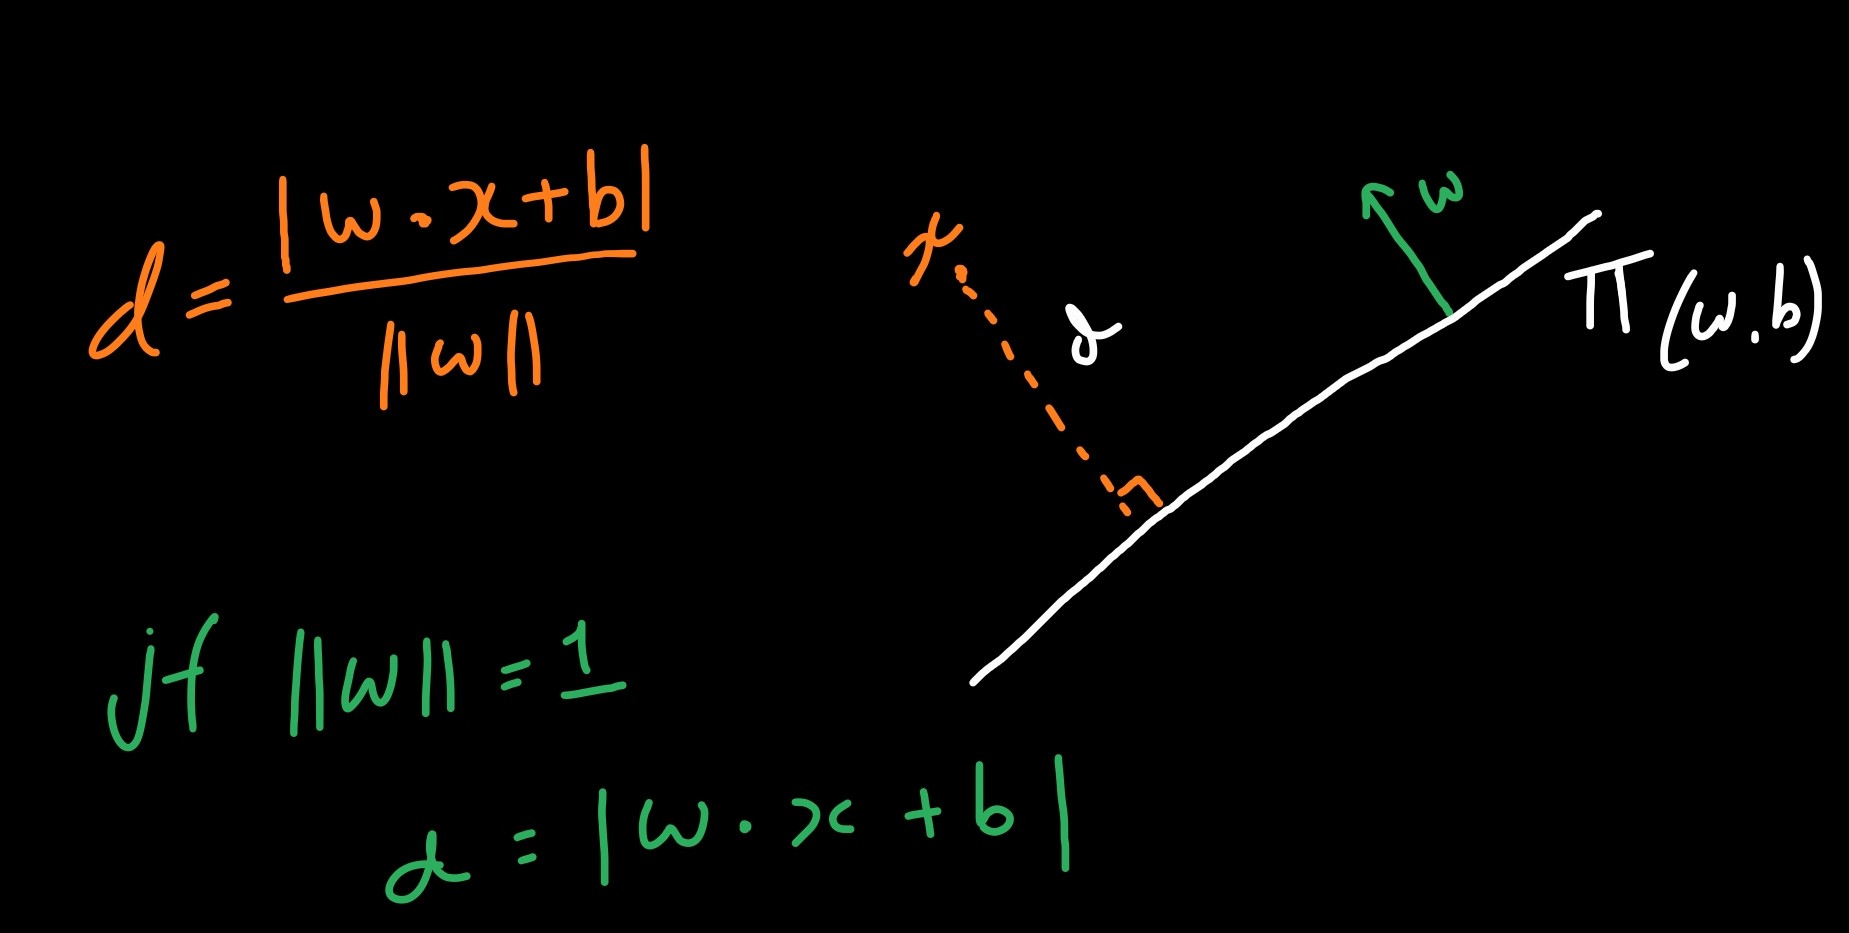 d = |w · x + b| / ||w||
x
d
w
π (w.b)
if ||w|| = 1
d = |w · x + b|